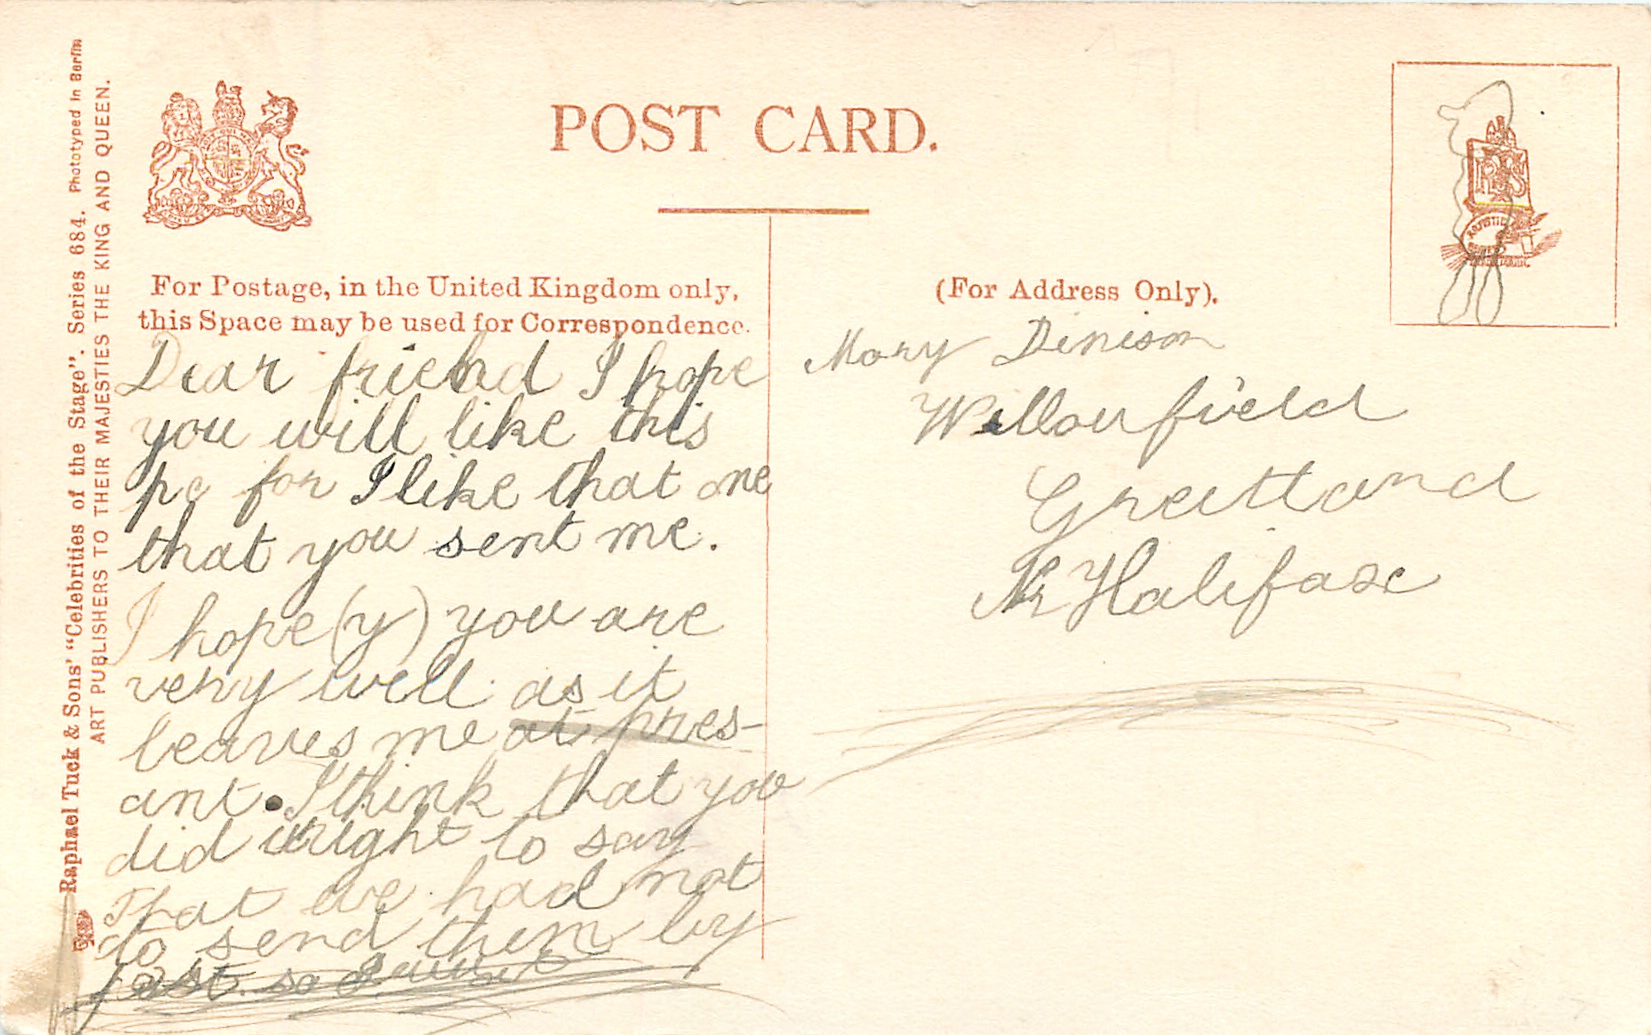 Raphael Tuck & Sons' "Celebrities of the Stage". Series 684. Phototyped in Berlin
ART PUBLISHERS TO THEIR MAJESTIES THE KING AND QUEEN.
POST CARD.
For Postage, in the United Kingdom only,
this Space may be used for Correspondence.
Dear friend I hope
you will like this
pc for I like that one
that you sent me.
I hope (y) you are
very well as it
leaves me at pres-
ant. I think that you
did wright to say
That we had not
to send them by
Post. so I
(For Address Only).
Mary Denison
Willowfield
Greetland
Nr Halifax